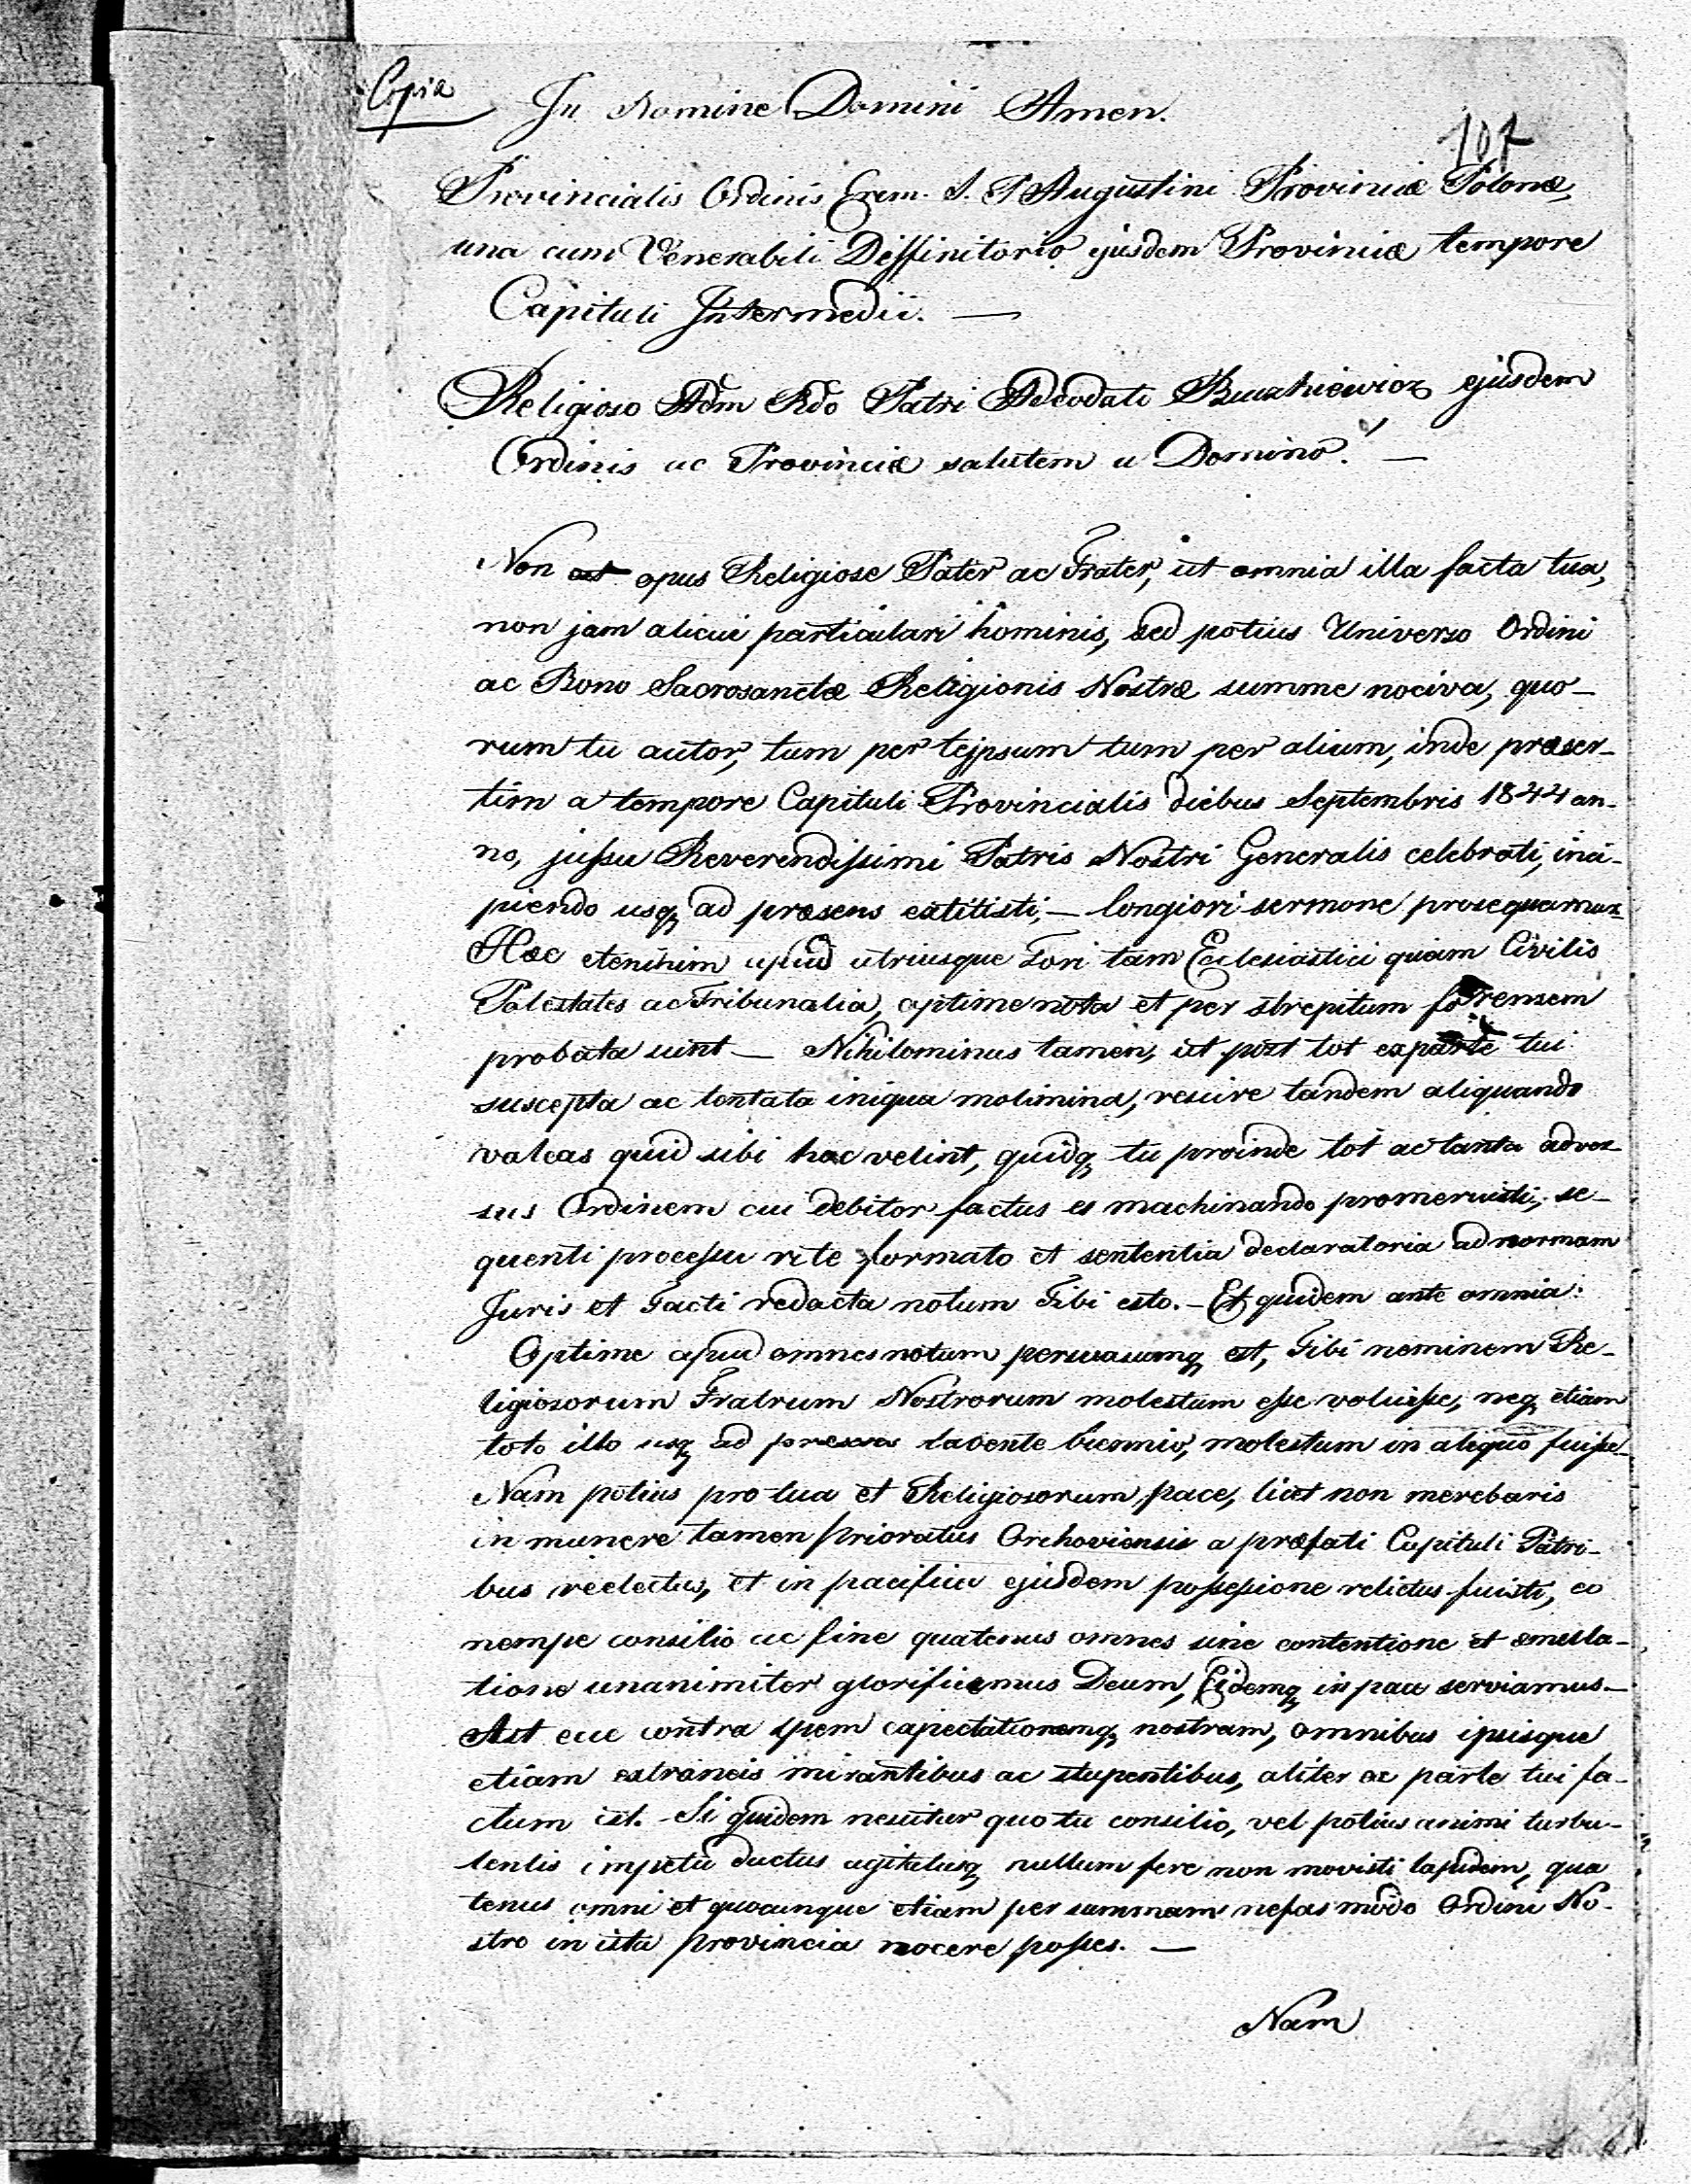 Copia
In Nomine Domini Amen.
107
Provincialis Ordinis Erem. S. P. Augustini Provinciæ Polonæ,
una cum Venerabili Deffinitorio ejusdem Provinciæ tempore
Capituli Intermedii. —
Religioso Adm Rdo Patri Adeodato ejusdem
Ordinis ac Provinciæ salutem a Domino! —
Non est opus Religiose Pater ac Frater, ut omnia illa facta tua,
non jam alicui particulari hominis, sed potius Universo Ordini
ac Bono Sacrosanctæ Religionis Nostræ summe nociva, quo-
rum tu autor, tum per teipsum tum per alium, inde præser-
tim a tempore Capituli Provincialis diebus Septembris 1844 an-
no, jussu Reverendissimi Patris Nostri Generalis celebrati, inci-
piendo usq ad præsens extitisti, — longiori sermone prosequamur
Hæc etenihim apud utriusque Fori tam Ecclesiastici quam Civilis
Potestates ac Tribunalia, optime nota et per strepitum forensem
probata sunt — Nihilominus tamen, ut post tot ex parte tui
suscepta ac tentata iniqua molimina, rescire tandem aliquando
valeas quid sibi hæc velint, quidq tu proinde tot ac tanta adver-
sus Ordinem cui debitor factus es machinando promeruisti, se-
quenti processu rite formato et sententia declaratoria ad normam
Juris et Facti redacta notum Tibi esto. — Et quidem ante omnia:
Optime apud omnes notum persuasumq est, Tibi neminem Re-
ligiosorum Fratrum Nostrorum molestum esse voluisse, neq etiam
toto illo usq ad præsens labente biennio, molestum in aliquo fuisse
Nam potius pro tua et Religiosorum pace, licet non merebaris
in munere tamen Prioratus Orchoviensis a præfati Capituli Patri-
bus reelectus, et in pacifica ejusdem possessione relictus fuisti, eo
nempe consilio ac fine quatenus omnes sine contentione et æmula-
tione unanimiter glorificemus Deum, Eidemq in pace serviamus —
Ast ecce contra spem expectationemq nostram, omnibus ipsisque
etiam extraneis mirantibus ac stupentibus, aliter ex parte tui fa-
ctum est. — Si quidem nescitur quo tu consilio, vel potius animi turbu-
lentis impetu ductus agitatusq nullum fere non movisti lapidem, qua
tenus omni et quocunque etiam per summam nefas modo Ordini No-
stro in ista provincia nocere posses. —
Nam